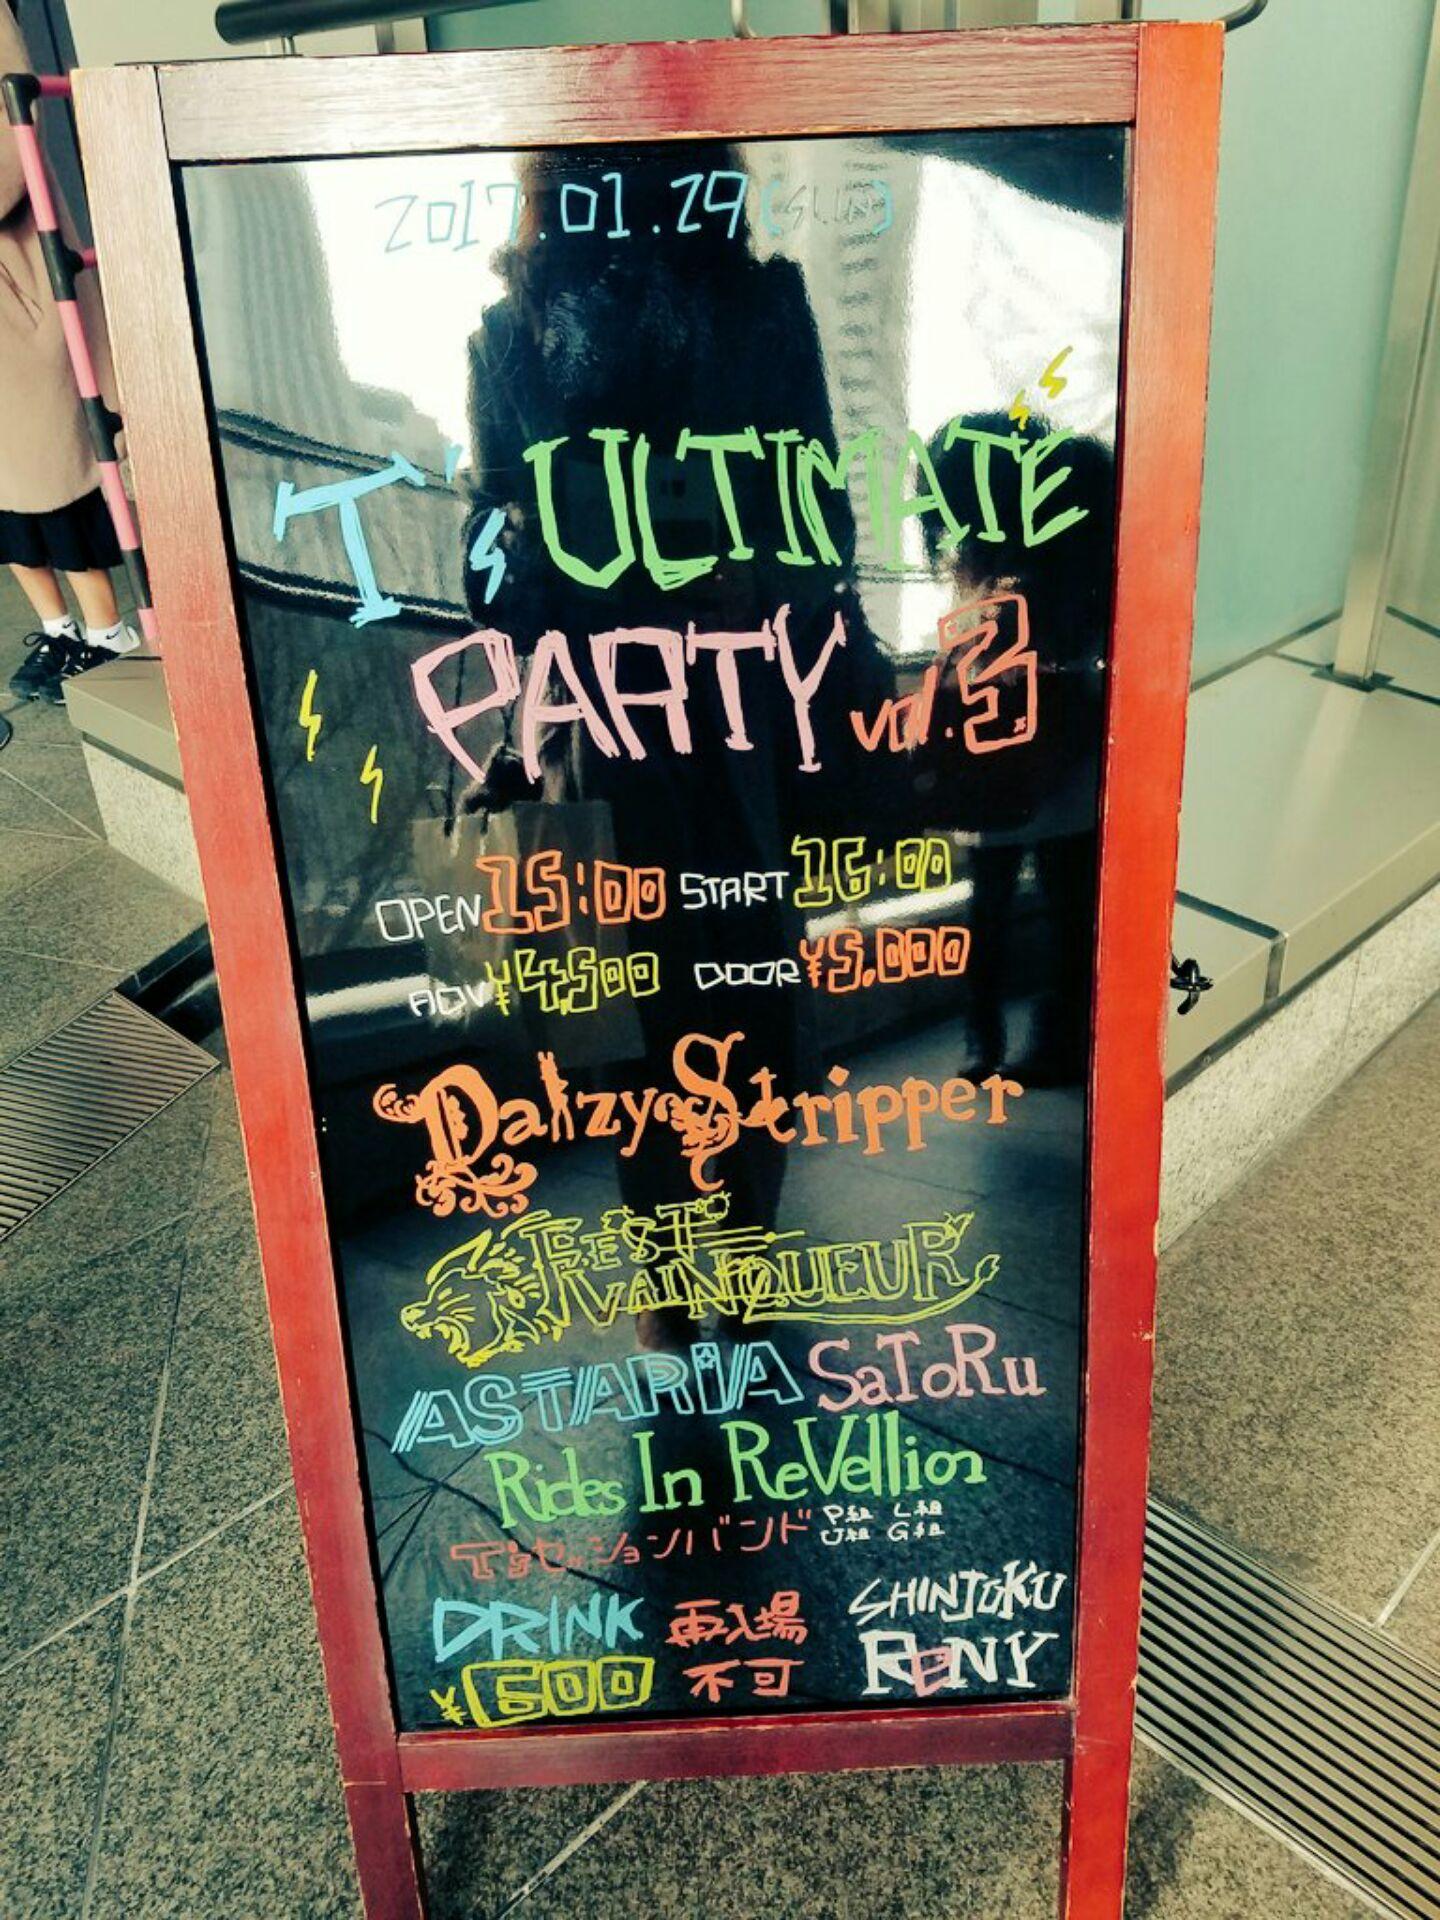 2017.01.29(SUN)
T's ULTIMATE
PARTY vol.3
OPEN 15:00 START 16:00
ADV ¥4,500 DOOR ¥5,000
DaizyStripper
FEST VAINQUEUR
ASTARIA SaToRu
Rides In ReVellion
T'sセッションバンド P組 L組
U組 G組
DRINK 再入場 SHINJUKU
¥600 不可 ReNY